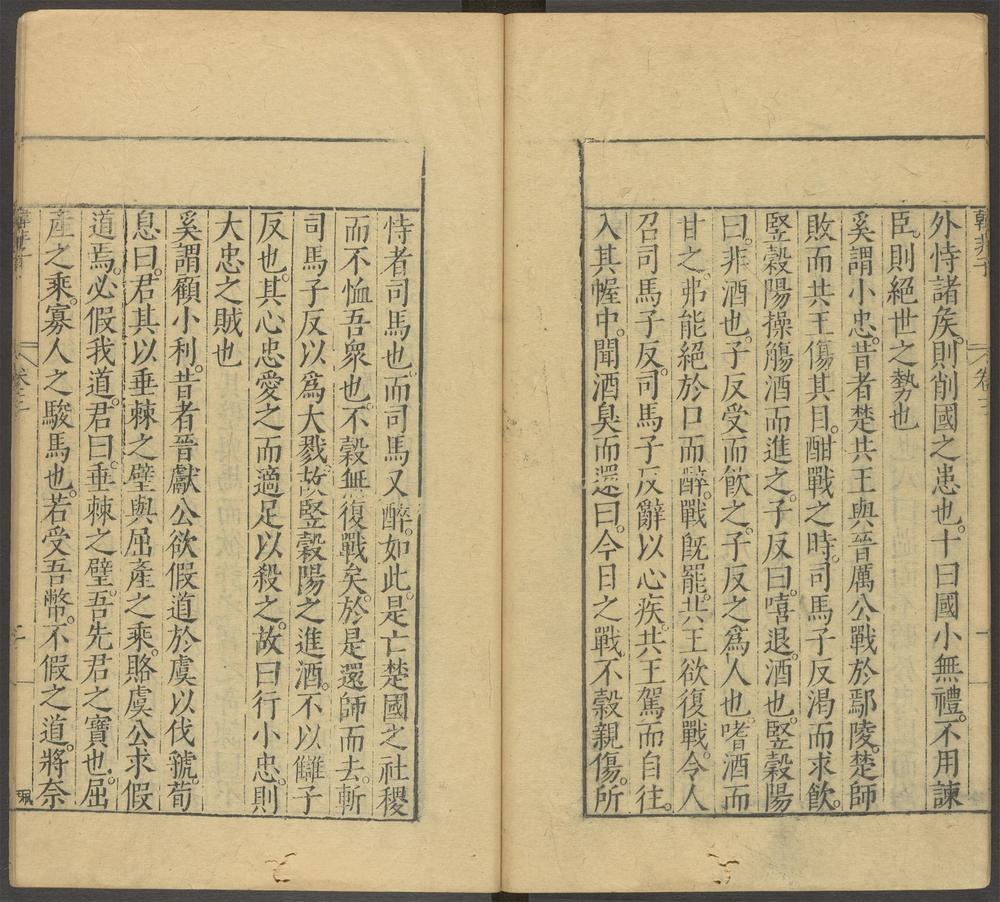 韓非子 卷三
外恃諸矦。則削國之患也。十曰國小無禮。不用諫
臣。則絕世之勢也
奚謂小忠。昔者楚共王與晉厲公戰於鄢陵。楚師
敗而共王傷其目。酣戰之時。司馬子反渴而求飲。
竪穀陽操觴酒而進之。子反曰。嘻退。酒也。竪穀陽
曰。非酒也。子反受而飮之。子反之爲人也。嗜酒而
甘之。弗能絕於口而醉。戰旣罷。共王欲復戰。令人
召司馬子反。司馬子反辭以心疾。共王駕而自往。
入其幄中。聞酒臭而還。曰。今日之戰。不穀親傷。所
恃者司馬也。而司馬又醉。如此。是亡楚國之社稷
而不恤吾衆也。不穀無復戰矣。於是還師而去。斬
司馬子反以爲大戮。故竪穀陽之進酒。不以讎子
反也。其心忠愛之而適足以殺之。故曰行小忠。則
大忠之賊也
奚謂顧小利。昔者晉獻公欲假道於虞以伐虢。荀
息曰。君其以垂棘之璧與屈產之乘。賂虞公。求假
道焉。必假我道。君曰。垂棘之璧。吾先君之寶也。屈
產之乘。寡人之駿馬也。若受吾幣。不假之道。將奈